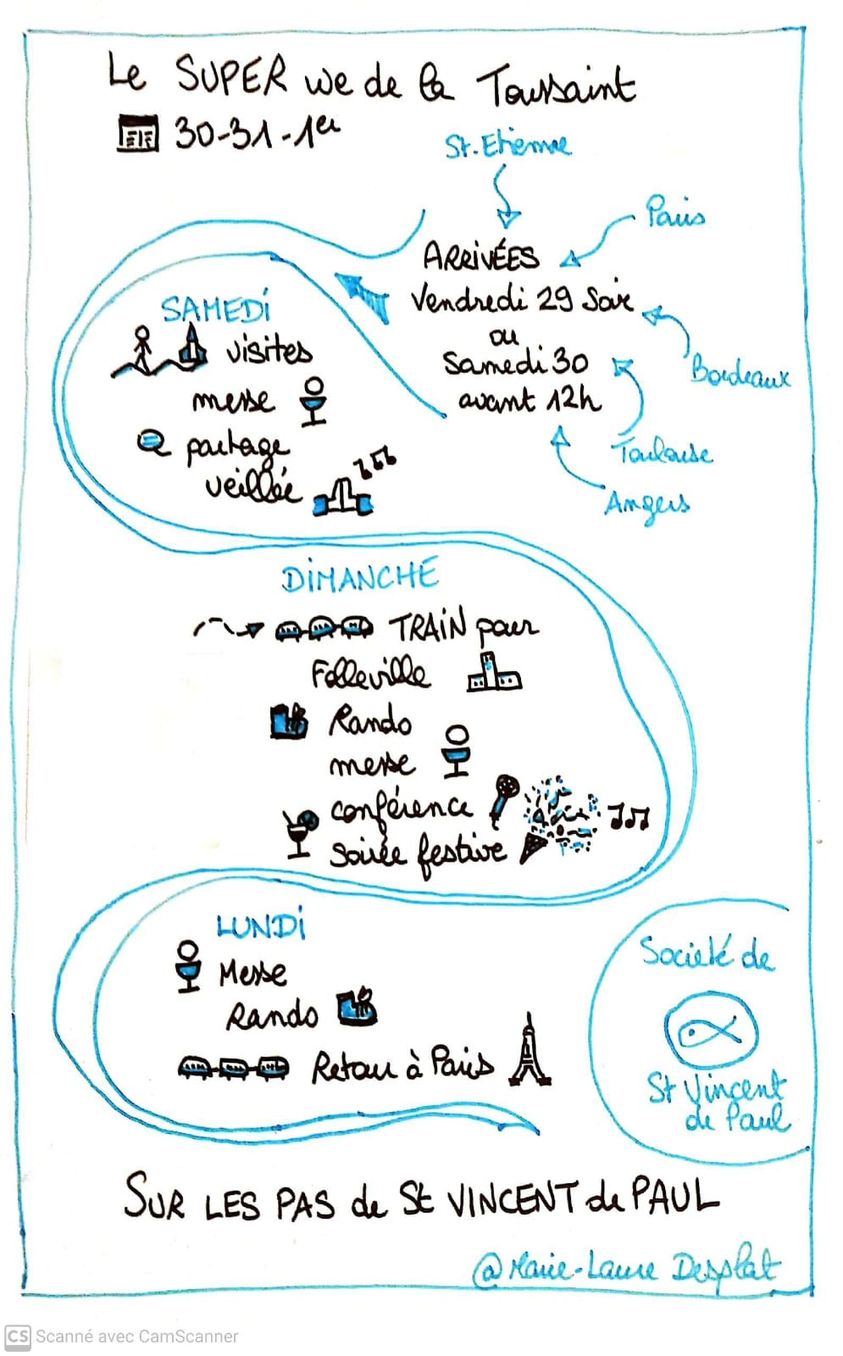 Le SUPER we de la Toussaint
30-31-1er
St.Etienne
Paris
ARRIVÉES
Vendredi 29 Soir
ou
Samedi 30
avant 12h
Bordeaux
Toulouse
Angers
SAMEDI
visites
messe
partage
veillée
DIMANCHE
TRAIN pour
Folleville
Rando
messe
conférence
Soirée festive
LUNDI
Messe
Rando
Retour à Paris
Société de
St Vincent
de Paul
SUR LES PAS de St VINCENT de PAUL
@Marie-Laure Desplat
CS Scanné avec CamScanner